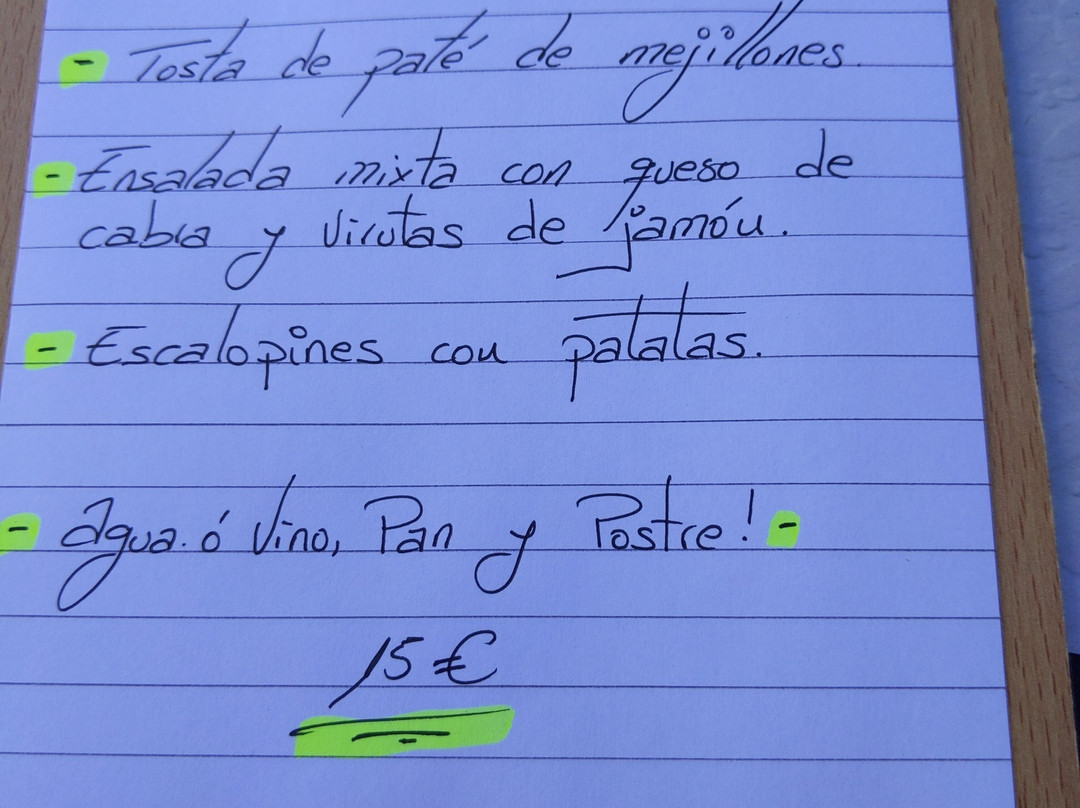 - Tosta de paté de mejillones.
- Ensalada mixta con queso de
cabra y virutas de jamón.
- Escalopines con patatas.
- Agua ó Vino, Pan y Postre! -
15 €